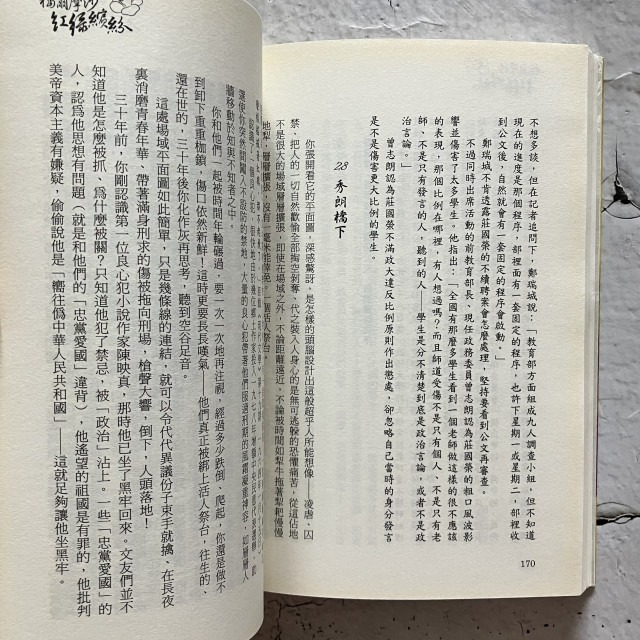 不想多談，但在記者追問下，鄭瑞城說：「教育部方面組成九人調查小組，但不知道
現在的進度是那個程序，部裡面有一套固定的程序，也許下星期一或星期二，部裡收
到公文後，自然就會有一套固定的程序會啟動。」
鄭瑞城不肯透露莊國榮的不續聘案會怎麼處理，堅持要看到公文再審查。
不過同時出席活動的前教育部長、現任政務委員曾志朗認為，莊國榮的粗口風波影
響並傷害了太多學生。他指出：「全國有那麼多學生看到一個老師做這樣的很不應該
的表現，那個比例在哪裡，有人想過嗎？而且師道受傷不是只有個人、不是只有老
師、不是只有發言的人，聽到的人——學生是分不清楚到底是政治言論，或者不是政
治言論。」
曾志朗認為莊國榮不滿政大違反比例原則作出懲處，卻忽略自己當時的身分發言
是不是傷害更大比例的學生。
28 秀朗橋下
你張開看它的平面圖，深感驚訝，是怎樣的頭腦設計出這般超乎人所能想像——凌虐、囚
禁、把人的一切自然歡愉全部掏空剝奪、代之裝入人身心的是無可逃躲的恐懼痛苦，從這佔地
不是很大的場域層層擴張，即使在場域之外，不論距離遠近，不論被時間如犁牛拖著犁耙慢慢
170
紅綠繽紛
牆移動於知與不知者之中。
你和他們一起被時間年輪碾過，要一次一次地再注視，經過多少跌倒、爬起，你還是做不
到卸下重重枷鎖，傷口依然新鮮！這時更要長長嘆氣——他們真正被綁上活人祭台，往生的、
還在世的，三十年後你化作灰再思考，聽到空谷足音。
這處場域平面圖如此簡單，只是幾條線的連結，就可以令代代異議份子束手就擒、在長夜
裏消磨青春年華、帶著滿身刑求的傷被拖向刑場，槍聲大響，倒下，人頭落地！
三十年前，你剛認識第一位良心犯小說作家陳映真，那時他已坐了黑牢回來。文友們並不
知道他是怎麼被抓、為什麼被關？只知道他犯了禁忌，被「政治」沾上。一些「忠黨愛國」的
人，認為他思想有問題（就是和他們的「忠黨愛國」違背），他遙望的祖國是有罪的，他批判
美帝資本主義有嫌疑，偷偷說他是「嚮往偽中華人民共和國」——這就足夠讓他坐黑牢。